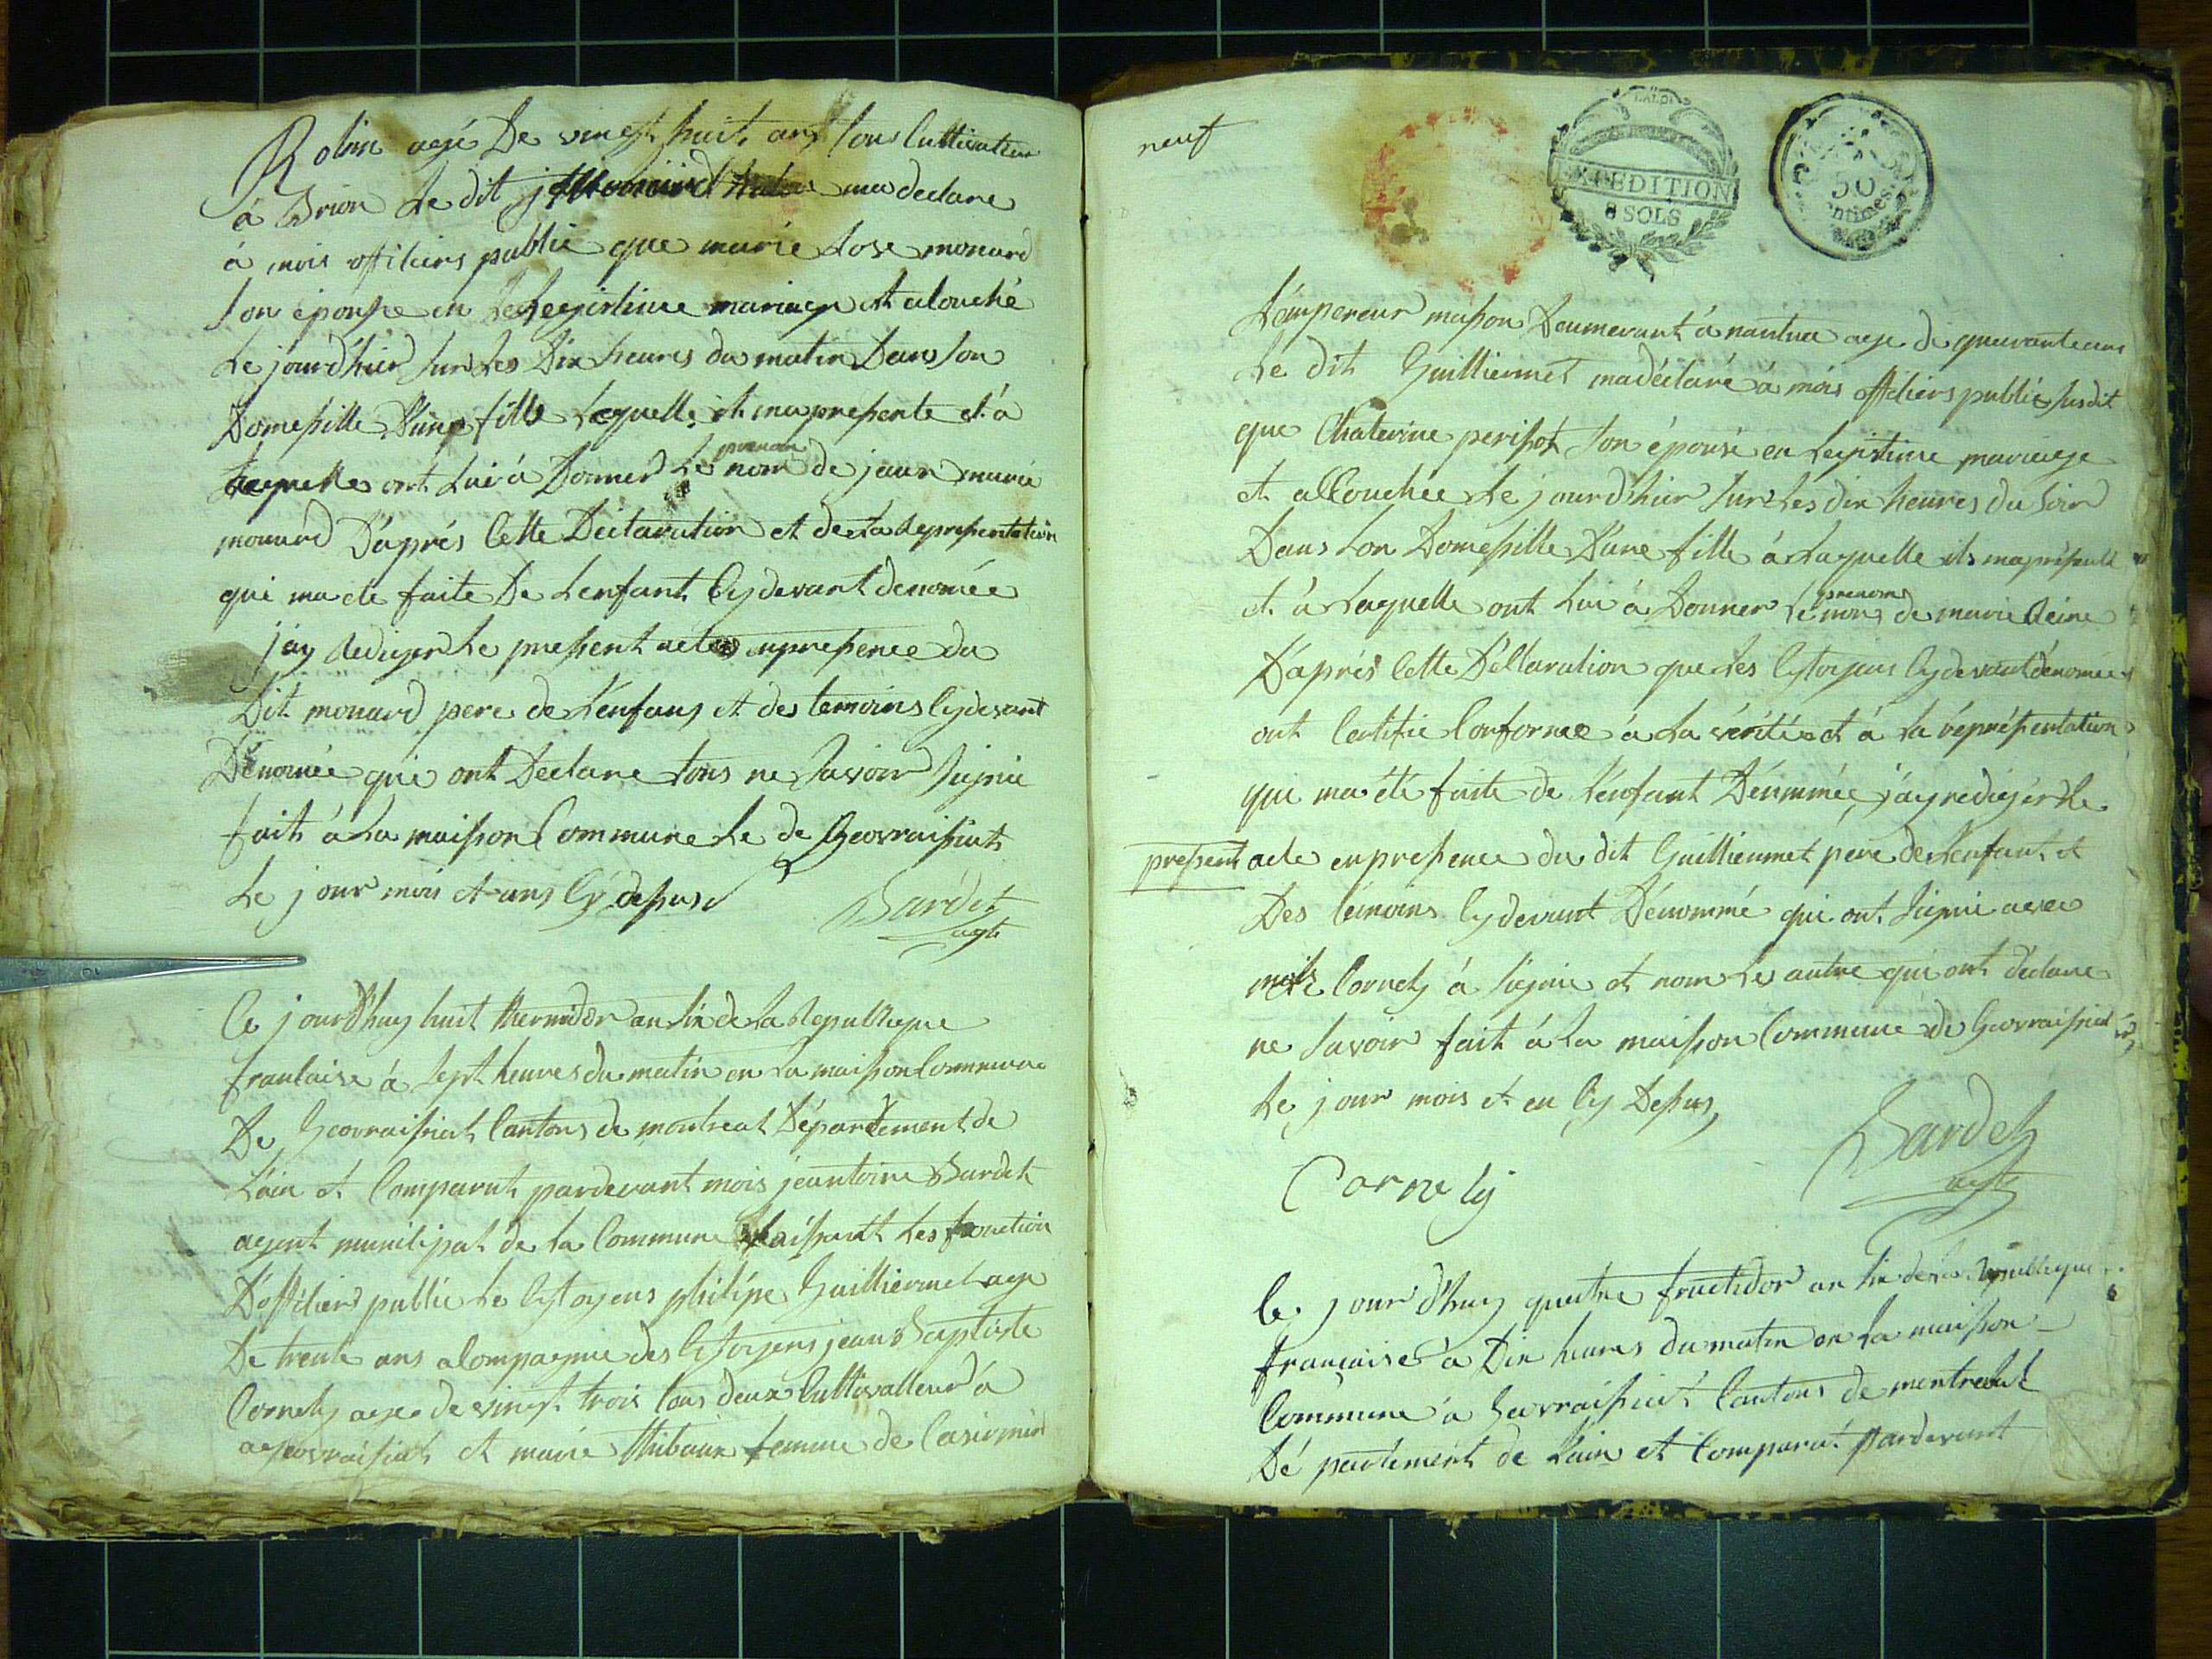 Robin agé De vingt huit ans tous Cultivateur
à Brion Le dit monard ma declare
à mois officiers public que marie Rose monard
Son épouse en Legistime mariage et acouché
Le jourd'hier sur Les Dix heures du matin Dans Son
Domessille D'une fille Laquelle it ma presente et à
Laquelle ont Lui à Donner Le prenom nom de jean marie
monard D'aprés Cette Déclaration et de La Representation
qui ma ete faite De Lenfant Cy devant denomée
j'ay Rediger Le present acte en presence du
Dit monard pere de L'enfans et des temoins Cy devant
Dénomée qui ont Declare tous ne Savoir Signie
fait à La maison Commune Le de Geovraissiat
Le jour mois et ans Cy dessus
Bardet
agt
Ce jourd'huy huit thermidor an Six de La Republique
francaise à Sept heures du matin en La maison Commune
De Geovraissiat Cantons de montreat Département de
L'ain et Comparut pardevant mois jeantoine Bardet
agent municipat de La Commune faissant Les fonction
D'officier public Le Cytoyens philipe Guilliermet age
De trente ans acompagnie des Cytoyens jean Baptiste
Cornely age de vingt trois tous deux Cultivalleur à
ageovraissiat et marie thibaux femme de Casimir
neuf
EXPEDITION
8 SOLS
50
centimes
L'empereur masson Deumerant à nantua age de quarante ans
Le dit Guilliermet ma déclaré à mois officiers public Susdit
que Chaterine perissot Son épouse en Legistime mariage
et accouchée Le jourd'hier Sur Les dix heures du Soir
Dans Son Domessille D'une fille à Laquelle ils ma présenté
et à Laquelle ont Lui à Donner Le prenom nom de marie Reine
D'aprés Cette Déclaration que Les Cytoyens Cy devant dénomée
ont Certifie Conforme à La vérité et à La représentation
qui ma été faite de L'enfant Dénmmée, j'ay rediger Le
present acte en presence du dit Guilliermet pere de L'enfant et
Des témoins Cy devant Dénommé qui ont Signie avec
mois Cornely à signie et nom Le autre qui ont déclare
ne Savoir fait à La maison Commune de Geovraissiat
Le jour mois et an Cy Dessus,
Cornely
Bardet
agt
Ce jour d'huy quatre fructidor an Six de La Republique
française à Dix heures du matin en La maison
Commune à Geovraissiat Cantons de montreat
Dé partement de L'ain et Comparut pardevant